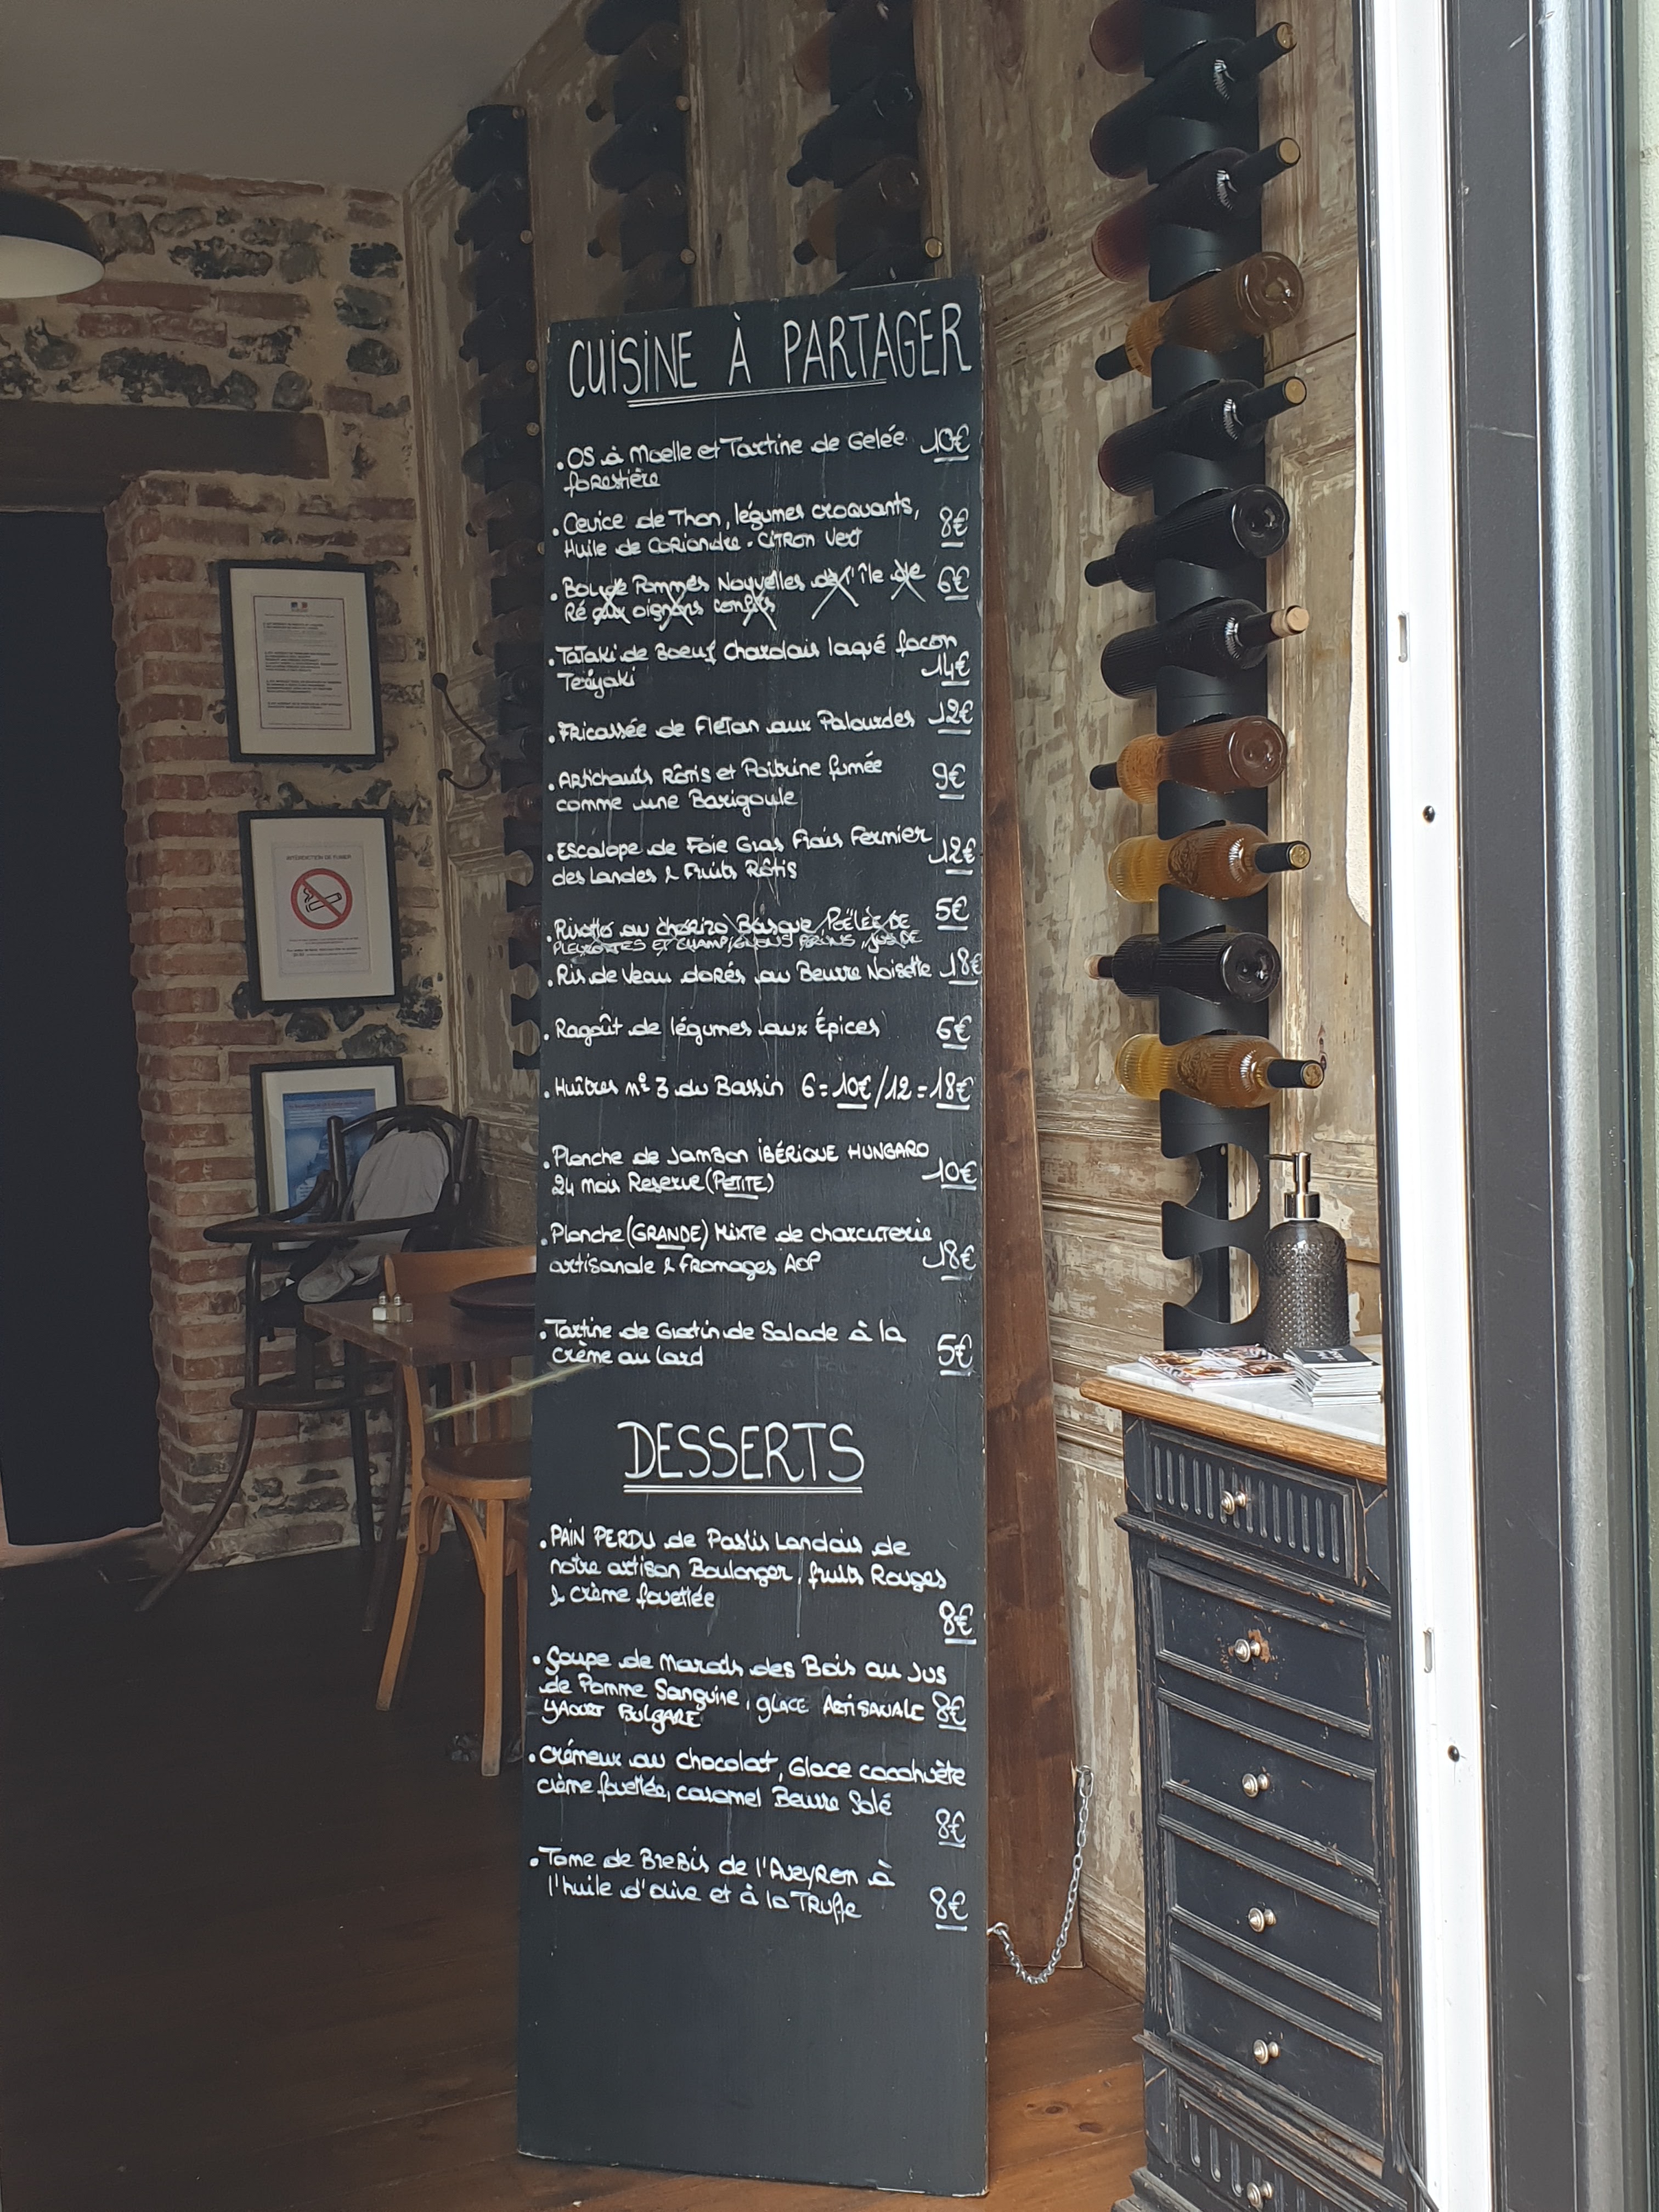 CUISINE À PARTAGER
. OS à Moelle et Tartine de Gelée 10€
forestière
. Cevice de Thon, légumes croquants,
Huile de Coriandre - Citron Vert 8€
. Bol de Pommes Nouvelles de l'île de 6€
Ré aux oignons confits
. Tataki de Boeuf Charolais laqué façon
Teriyaki 14€
. Fricassée de Fletan aux Palourdes 12€
. Artichauts Rôtis et Poitrine fumée 9€
comme une Barigoule
. Escalope de Foie Gras Frais Fermier 12€
des Landes & Fruits Rôtis
. Risotto au chorizo Basque, POÊLÉE DE 5€
PLEUROTES ET CHAMPIGNONS BRUNS, JUS DE
. Ris de Veau dorés au Beurre Noisette 18€
. Ragoût de légumes aux Épices 6€
. Huîtres n° 3 du Bassin 6=10€/12=18€
. Planche de Jambon IBÉRIQUE HUNGARO
24 mois Reserve (PETITE) 10€
. Planche (GRANDE) MIXTE de charcuterie
artisanale & fromages AOP 18€
. Tartine de Gratin de Salade à la
crème au Lard 5€
DESSERTS
. PAIN PERDU de Pastis Landais de
notre artisan Boulanger, fruits Rouges
& crème fouettée
8€
. Soupe de Maraih des Bois au Jus
de Pomme Sanguine, glace ARTISANALE 8€
YAOURT BULGARE
. Crémeux au chocolat, Glace cacahuète
crème fouettée, caramel Beurre Salé
8€
. Tome de Brebis de l'Aveyron à
l'huile d'olive et à la Truffe 8€
INTERDICTION DE FUMER